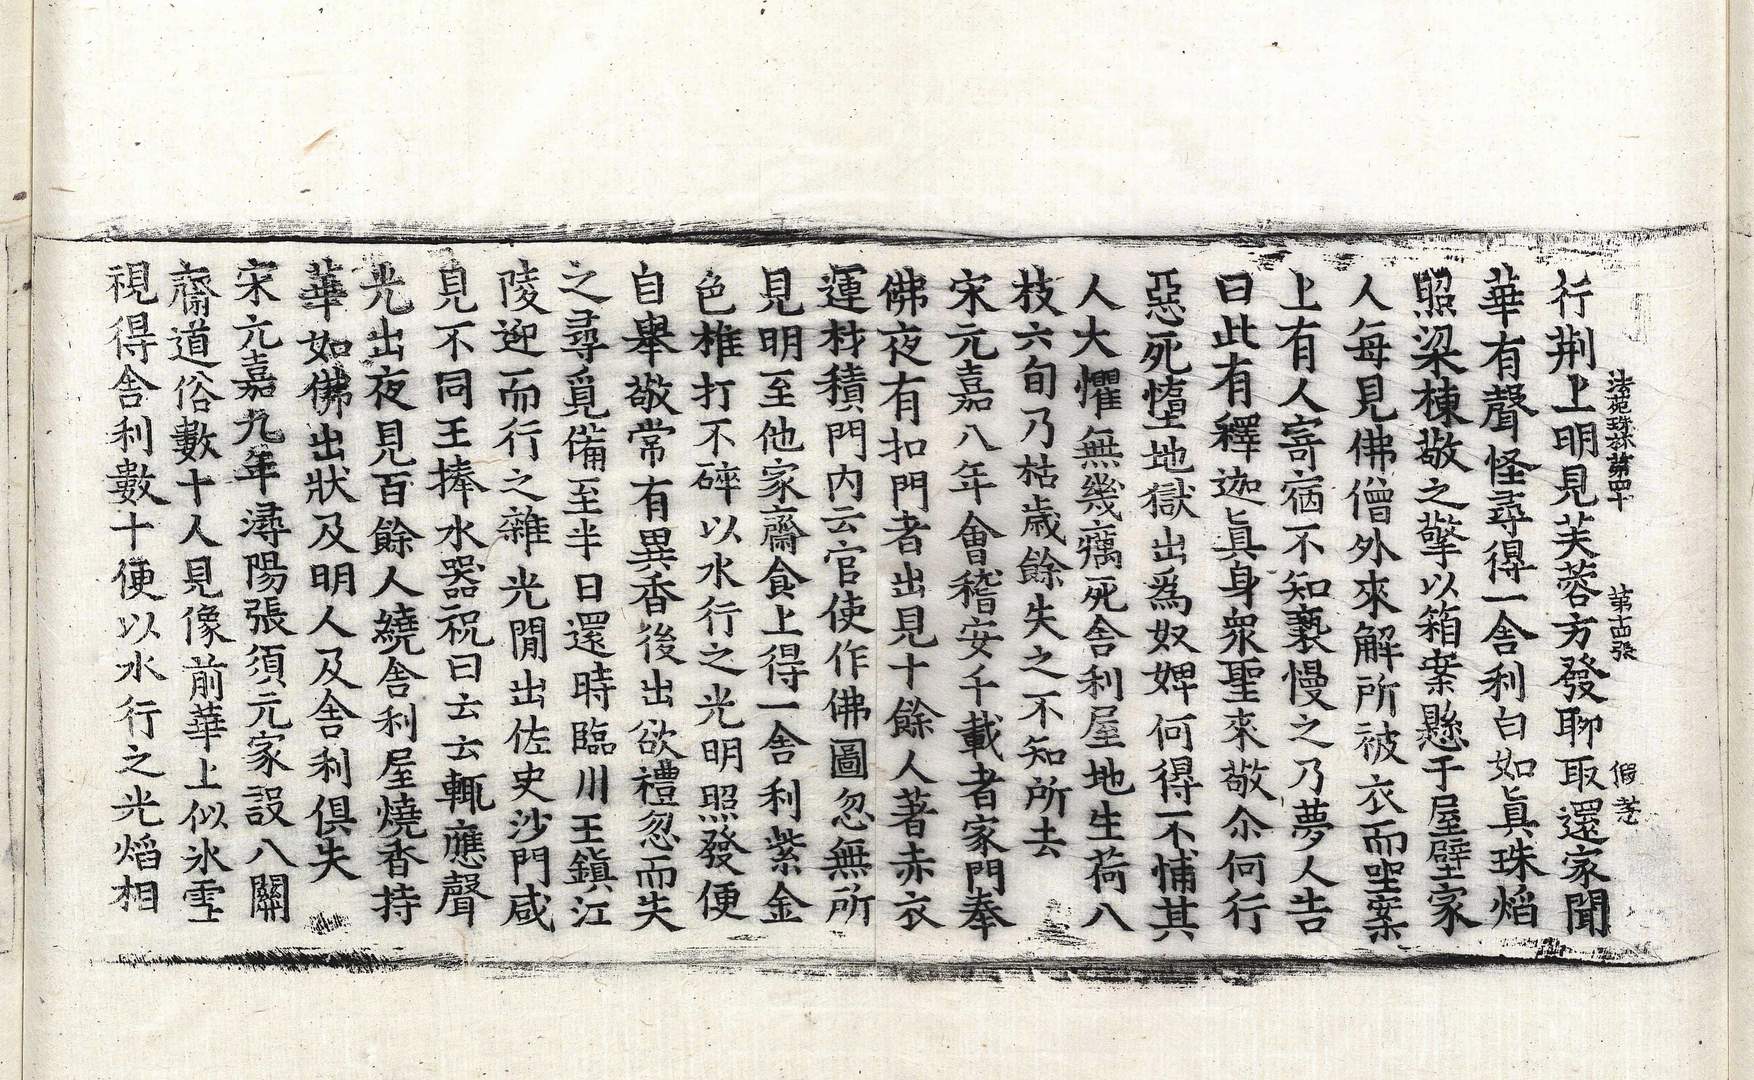 法苑珠林第四十 第十四張 假
行荆上明見芙蓉方發聊取還家聞
華有聲怪尋得一舍利白如眞珠焰
照梁棟敬之擎以箱案懸于屋壁家
人每見佛僧外來解所被衣而坐案
上有人寄宿不知䙝慢之乃夢人告
曰此有釋迦眞身衆聖來敬尒何行
惡死墮地獄出爲奴婢何得不怖其
人大懼無幾癘死舍利屋地生荷八
枝六旬乃枯歲餘失之不知所去
宋元嘉八年會稽安千載者家門奉
佛夜有扣門者出見十餘人著赤衣
運材積門内云官使作佛圖忽無所
見明至他家齋食上得一舍利紫金
色椎打不碎以水行之光明照發便
自舉敬常有異香後出欲禮忽而失
之尋覓備至半日還時臨川王鎭江
陵迎而行之雜光閒出佐史沙門咸
見不同王捧水器祝曰云云輒應聲
光出夜見百餘人繞舍利屋燒香持
華如佛出狀及明人及舍利俱失
宋元嘉九年潯陽張須元家設八關
齋道俗數十人見像前華上似氷雪
視得舍利數十便以水行之光焰相